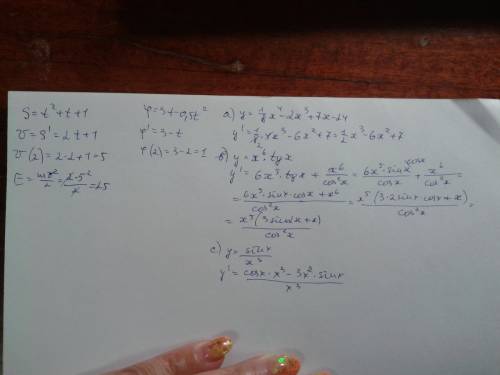 S = t² + t + 1
v = S' = 2t + 1
v(2) = 2·2 + 1 = 5
E = mv²/2 = 2·5²/2 = 25
φ = 3t - 0,5t²
φ' = 3 - t
φ(2) = 3 - 2 = 1
a) y = 1/8 x⁴ - 2x³ + 7x - 24
y' = 1/8 · 4x³ - 6x² + 7 = 1/2 x³ - 6x² + 7
б) y = x⁶ · tg x
y' = 6x⁵ · tg x + x⁶/cos²x = 6x⁵ · sin x cos x/cos x + x⁶/cos²x =
= 6x⁵ · sin x · cos x + x⁶/cos²x = x⁵(3·2 sin x cos x + x)/cos²x =
= x⁵(3 sin 2x + x)/cos²x
c) y = sin x/x³
y' = cos x · x³ - 3x² · sin x/x³